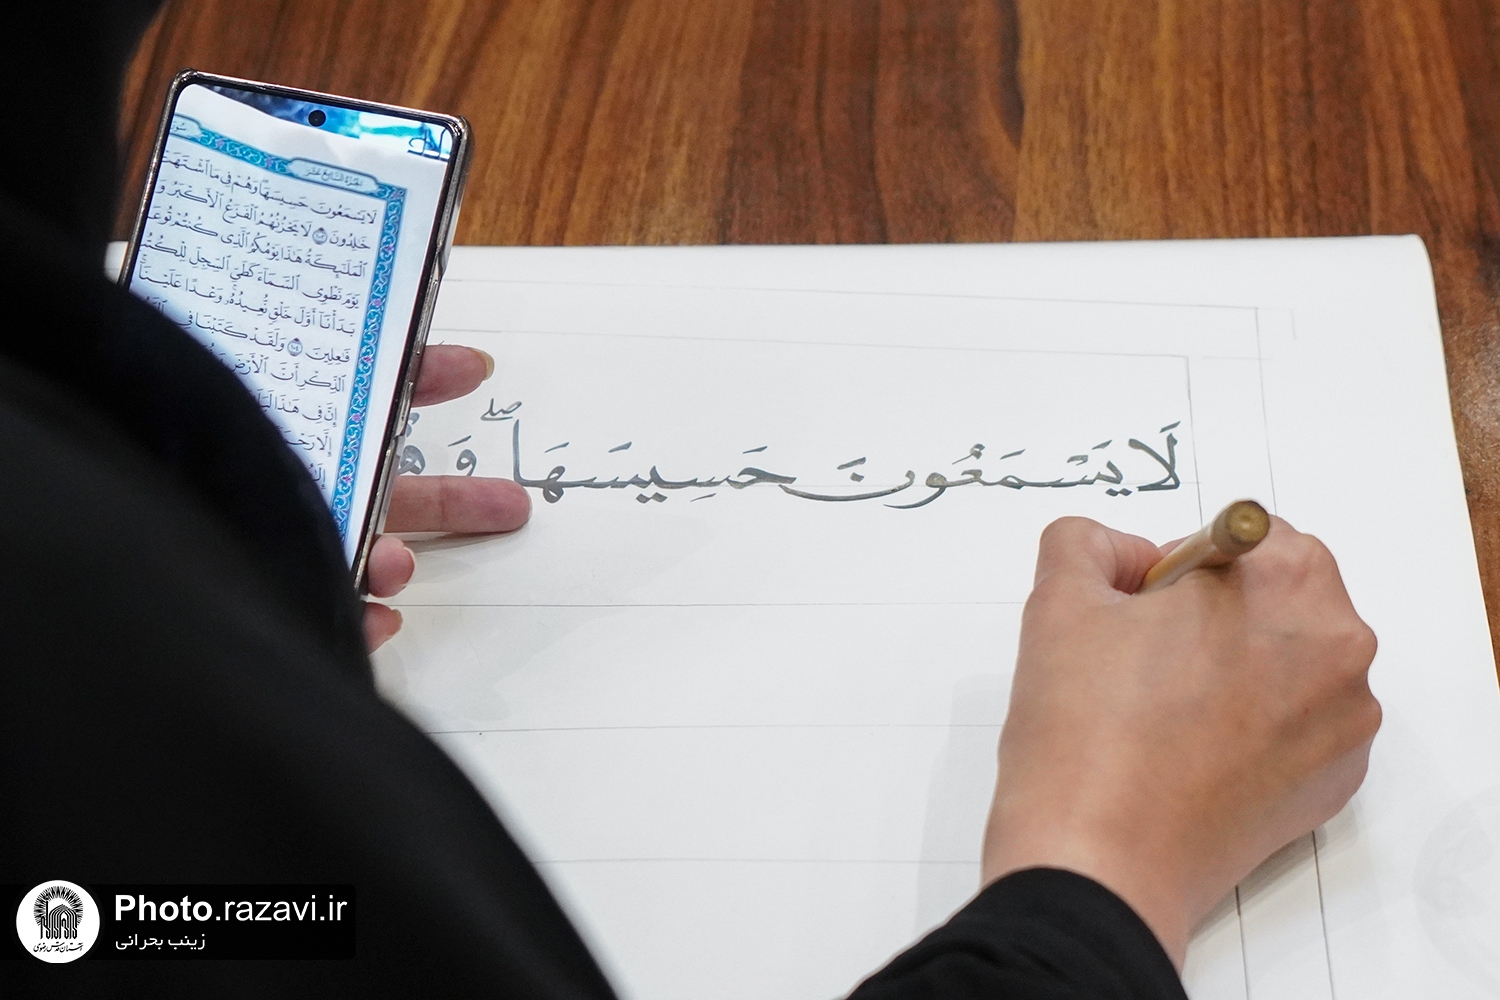 الجزء السابع عشر
لَا يَسْمَعُونَ حَسِيسَهَا ۖ وَهُمْ فِي مَا ٱشْتَهَتْ
خَٰلِدُونَ ١٠٢ لَا يَحْزُنُهُمُ ٱلْفَزَعُ ٱلْأَكْبَرُ وَ
ٱلْمَلَٰٓئِكَةُ هَٰذَا يَوْمُكُمُ ٱلَّذِي كُنتُمْ تُوعَ
يَوْمَ نَطْوِي ٱلسَّمَآءَ كَطَيِّ ٱلسِّجِلِّ لِلْكُتُ
بَدَأْنَآ أَوَّلَ خَلْقٍ نُّعِيدُهُۥ ۚ وَعْدًا عَلَيْنَآ ۚ
فَٰعِلِينَ ١٠٤ وَلَقَدْ كَتَبْنَا فِي
ٱلذِّكْرِ أَنَّ ٱلْأَرْضَ
إِنَّ فِي هَٰذَا
لَا يَسْمَعُونَ حَسِيسَهَا ۖ وَ
Photo.razavi.ir
زینب بحرانی
آستان قدس رضوی